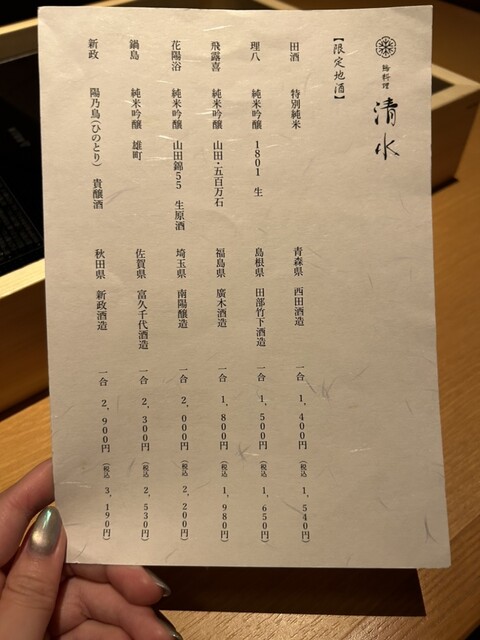 鮨料理
清水
【限定地酒】
田酒 特別純米 青森県 西田酒造 一合 1,400円 (税込 1,540円)
理八 純米吟醸 1801 生 島根県 田部竹下酒造 一合 1,500円 (税込 1,650円)
飛露喜 純米吟醸 山田・五百万石 福島県 廣木酒造 一合 1,800円 (税込 1,980円)
花陽浴 純米吟醸 山田錦55 生原酒 埼玉県 南陽醸造 一合 2,000円 (税込 2,200円)
鍋島 純米吟醸 雄町 佐賀県 富久千代酒造 一合 2,300円 (税込 2,530円)
新政 陽乃鳥(ひのとり) 貴醸酒 秋田県 新政酒造 一合 2,900円 (税込 3,190円)